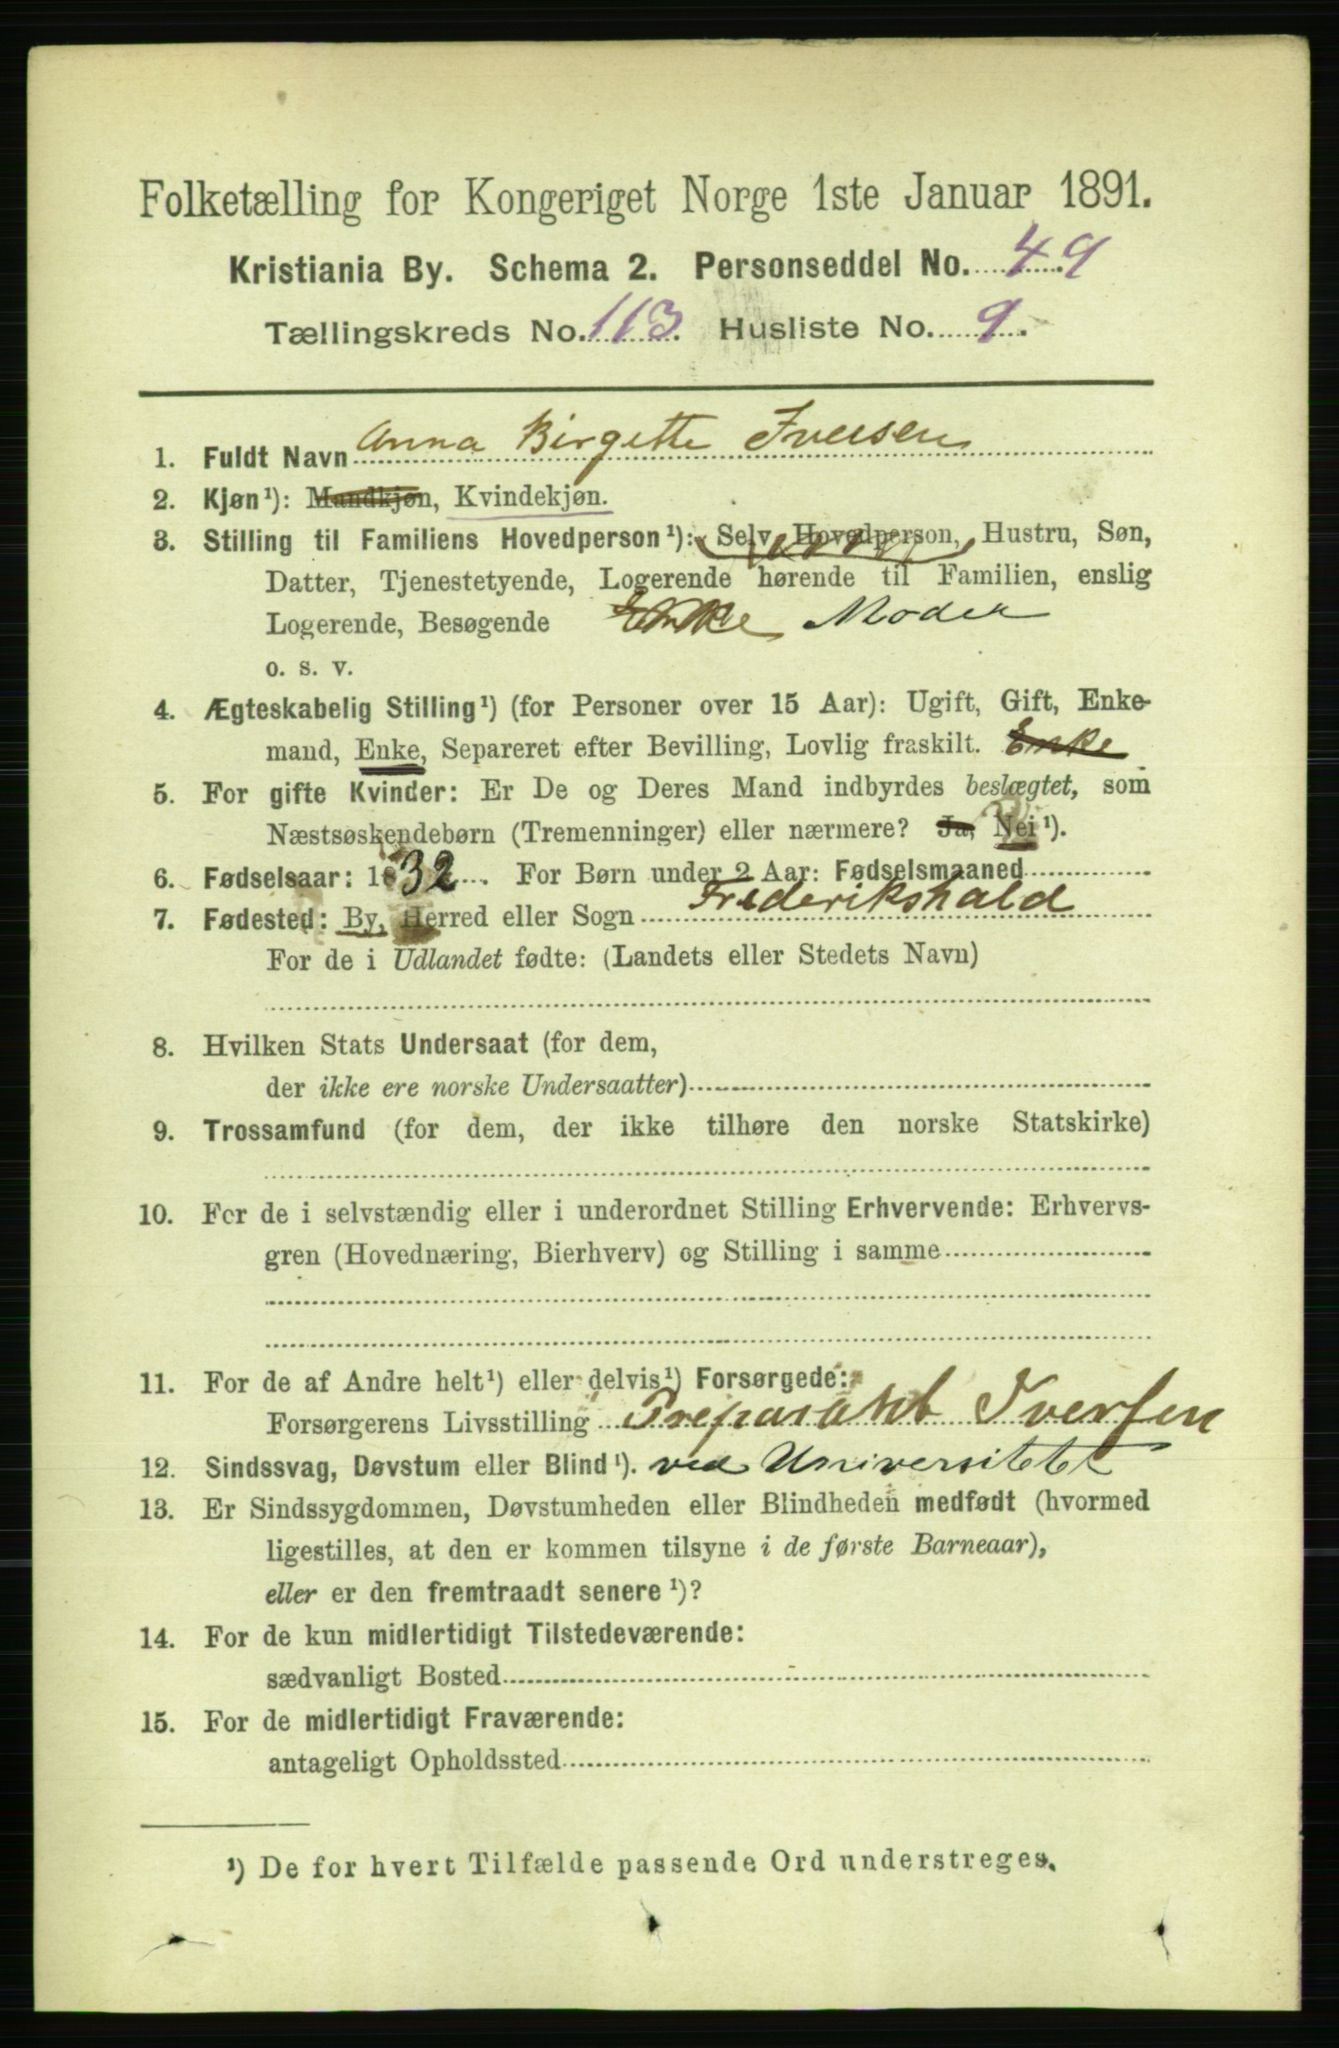 Folketælling for Kongeriget Norge 1ste Januar 1891.
Kristiania By. Schema 2. Personseddel No. 49
Tællingskreds No. 113. Husliste No. 9.
1. Fuldt Navn Anna Birgette Iversen
2. Kjøn¹): Mandkjøn, Kvindekjøn.
3. Stilling til Familiens Hovedperson¹): Selv Hovedperson, Hustru, Søn,
Datter, Tjenestetyende, Logerende hørende til Familien, enslig
Logerende, Besøgende Enke Moder
o. s. v.
4. Ægteskabelig Stilling¹) (for Personer over 15 Aar): Ugift, Gift, Enke-
mand, Enke, Separeret efter Bevilling, Lovlig fraskilt. Enke
5. For gifte Kvinder: Er De og Deres Mand indbyrdes beslægtet, som
Næstsøskendebørn (Tremenninger) eller nærmere? Ja, Nei¹).
6. Fødselsaar: 1832. For Børn under 2 Aar: Fødselsmaaned
7. Fødested: By, Herred eller Sogn Frederikshald
For de i Udlandet fødte: (Landets eller Stedets Navn)
8. Hvilken Stats Undersaat (for dem,
der ikke ere norske Undersaatter)
9. Trossamfund (for dem, der ikke tilhøre den norske Statskirke)
10. For de i selvstændig eller i underordnet Stilling Erhvervende: Erhvervs-
gren (Hovednæring, Bierhverv) og Stilling i samme
11. For de af Andre helt¹) eller delvis¹) Forsørgede:
Forsørgerens Livsstilling Iversen
12. Sindssvag, Døvstum eller Blind¹). ved Universitetet
13. Er Sindssygdommen, Døvstumheden eller Blindheden medfødt (hvormed
ligestilles, at den er kommen tilsyne i de første Barneaar),
eller er den fremtraadt senere¹)?
14. For de kun midlertidigt Tilstedeværende:
sædvanligt Bosted
15. For de midlertidigt Fraværende:
antageligt Opholdssted
¹) De for hvert Tilfælde passende Ord understreges.